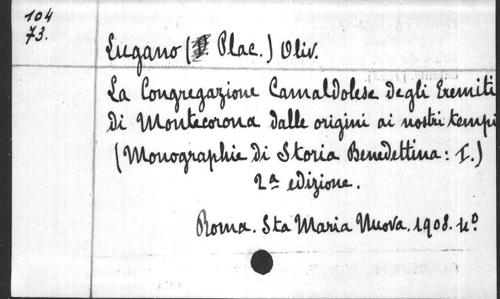 104
73.
Lugano (P. Plac.) Oliv.
La Congregazione Camaldolese degli Eremiti
di Montecorona dalle origini ai nostri tempi
(Monographie di Storia Benedettina: I.)
2ª edizione.
Roma. Sta Maria Nuova. 1908. 4º